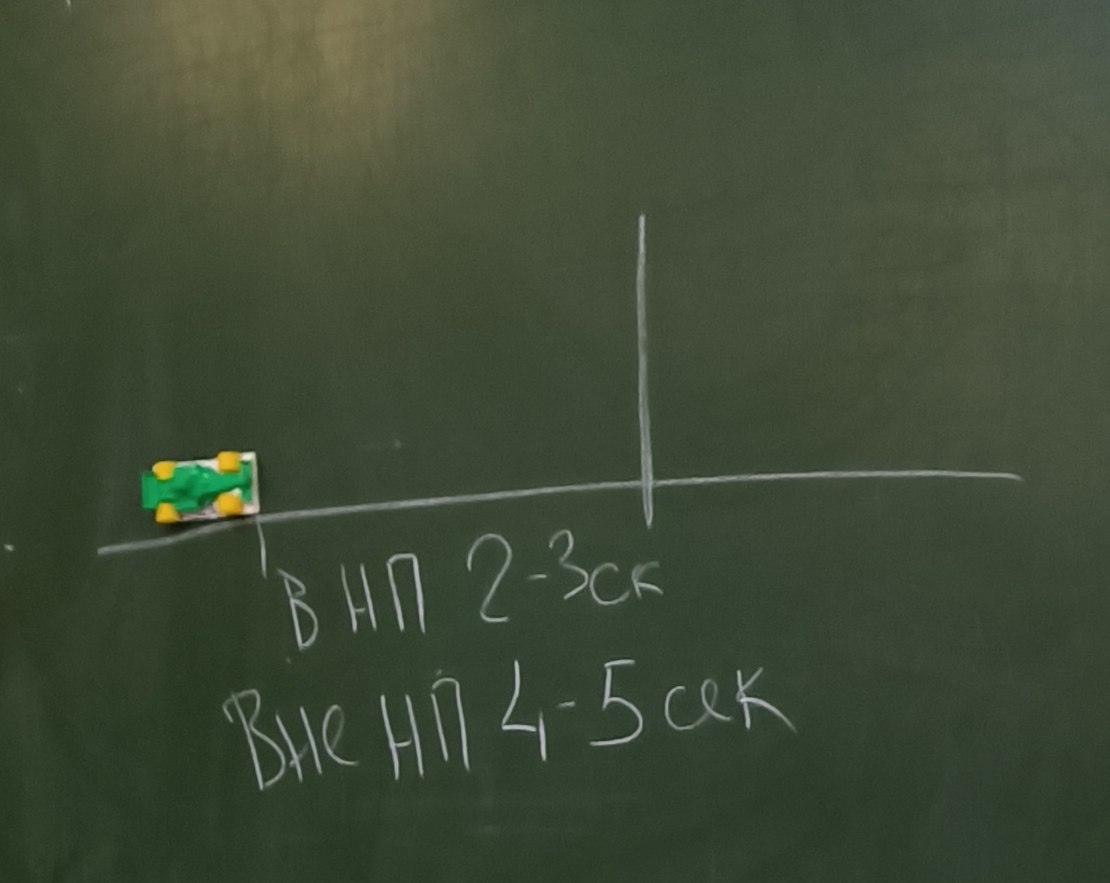 В НП 2-3ск
Вне НП 4-5 сек